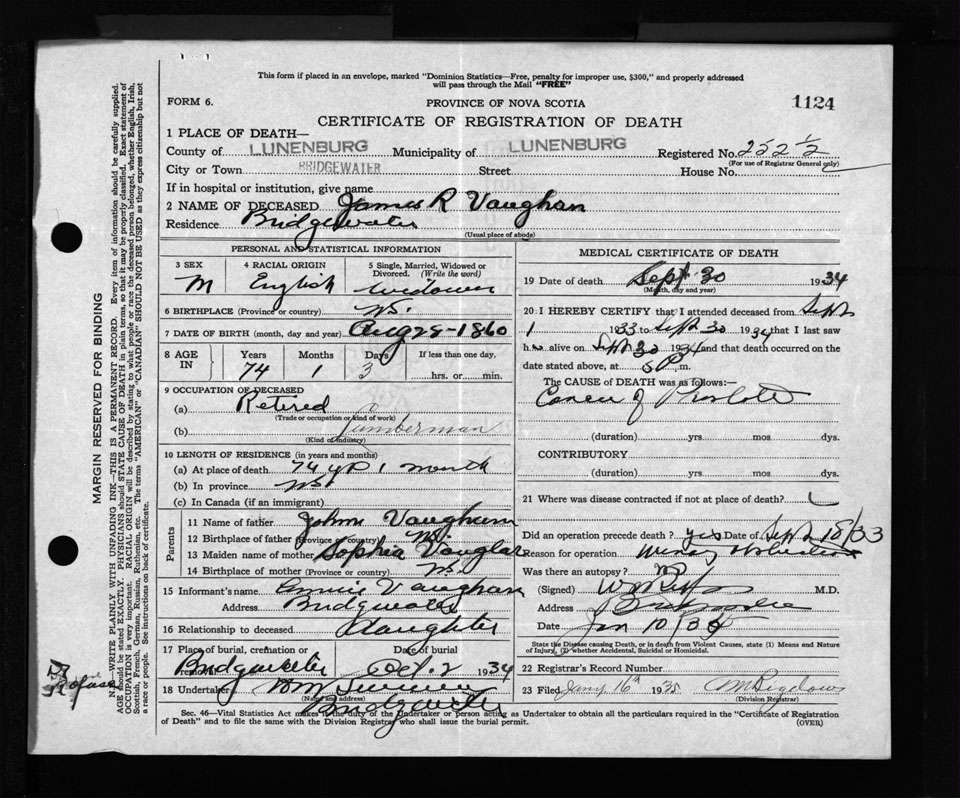 This form if placed in an envelope, marked "Dominion Statistics—Free, penalty for improper use, $300," and properly addressed
will pass through the Mail "FREE"
FORM 6. PROVINCE OF NOVA SCOTIA 1124
CERTIFICATE OF REGISTRATION OF DEATH
1 PLACE OF DEATH—
County of LUNENBURG Municipality of LUNENBURG Registered No. 252½
(For use of Registrar General only)
City or Town BRIDGEWATER Street House No.
If in hospital or institution, give name
2 NAME OF DECEASED James R Vaughan
Residence Bridgewater
(Usual place of abode)
PERSONAL AND STATISTICAL INFORMATION
3 SEX 4 RACIAL ORIGIN 5 Single, Married, Widowed or Divorced. (Write the word)
M English widower
6 BIRTHPLACE (Province or country) NS.
7 DATE OF BIRTH (month, day and year) Aug 28-1860
8 AGE IN Years Months Days If less than one day,
74 1 3 hrs. or min.
9 OCCUPATION OF DECEASED
(a) Retired
(Trade or occupation or kind of work)
(b) Lumberman
(Kind of industry)
10 LENGTH OF RESIDENCE (in years and months)
(a) At place of death 74 yrs 1 month
(b) In province NS.
(c) In Canada (if an immigrant)
Parents
11 Name of father John Vaughan
12 Birthplace of father (Province or country) NS.
13 Maiden name of mother Sophia
14 Birthplace of mother (Province or country) NS.
15 Informant's name Annie Vaughan
Address Bridgewater
16 Relationship to deceased daughter
17 Place of burial, cremation or removal Date of burial
Bridgewater Oct. 2 1934
18 Undertaker
(Name and address)
Bridgewater
MEDICAL CERTIFICATE OF DEATH
19 Date of death Sept 30 1934
(Month, day and year)
20 I HEREBY CERTIFY that I attended deceased from Sept
1 1933 to Sept 30 1934 that I last saw
h alive on Sept 30 1934 and that death occurred on the
date stated above, at m.
The CAUSE of DEATH was as follows:—
Cancer of Prostate
(duration) yrs mos dys.
CONTRIBUTORY
(duration) yrs mos dys.
21 Where was disease contracted if not at place of death?
Did an operation precede death? yes Date of Sept 18/33
Reason for operation
Was there an autopsy? no
(Signed) M.D.
Address Bridgewater
Date Jan 10/35
State the Disease causing Death, or in death from Violent Causes, state (1) Means and Nature
of Injury, (2) whether Accidental, Suicidal or Homicidal.
22 Registrar's Record Number
23 Filed Jany 16th 1935
(Division Registrar)
Sec. 46—Vital Statistics Act makes it the duty of the Undertaker or person acting as Undertaker to obtain all the particulars required in the "Certificate of Registration
of Death" and to file the same with the Division Registrar who shall issue the burial permit. (OVER)
MARGIN RESERVED FOR BINDING
N.B.—WRITE PLAINLY WITH UNFADING INK—THIS IS A PERMANENT RECORD. Every item of information should be carefully supplied.
AGE should be stated EXACTLY. PHYSICIANS should STATE CAUSE OF DEATH in plain terms, so that it may be properly classified. Exact statement of
OCCUPATION is very important. RACIAL ORIGIN will be described by stating to what people or race the deceased person belonged, whether English, Irish,
Scottish, French, German, Russian, Ruthenian, etc. The terms "AMERICAN" or "CANADIAN" SHOULD NOT BE USED as they express citizenship but not
a race or people. See instructions on back of certificate.